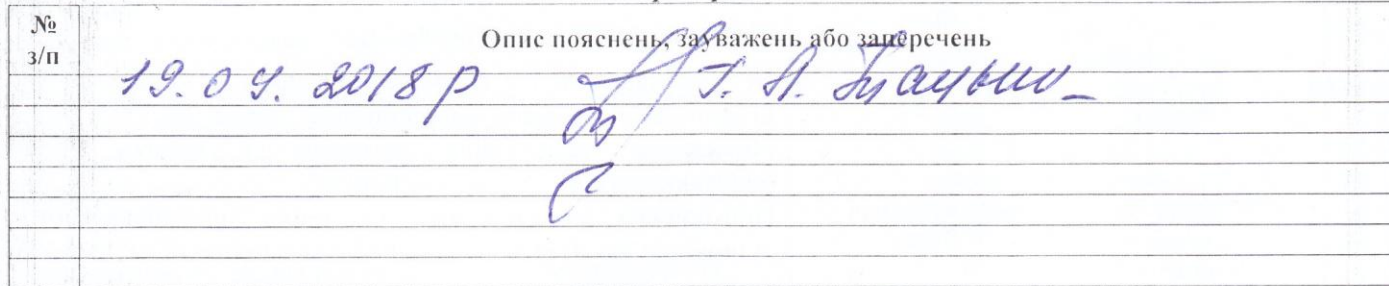 №
з/п
Опис пояснень, зауважень або заперечень
19.04.2018р Г. А.